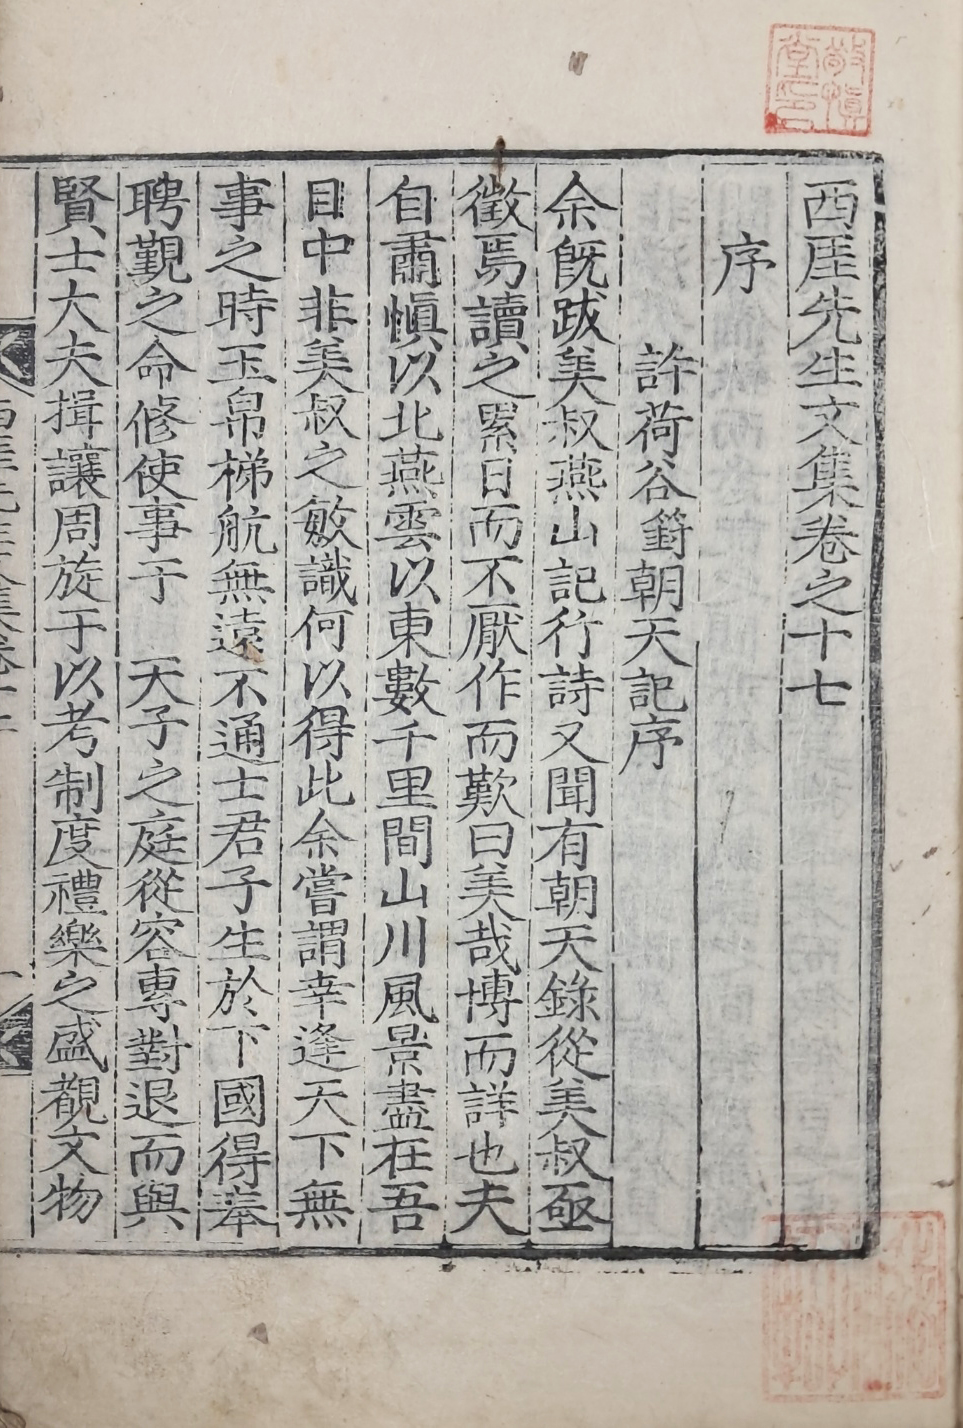 敬愼堂印
西厓先生文集卷之十七
序
許荷谷篈朝天記序
余旣跋美叔燕山記行詩又聞有朝天錄從美叔亟
徵焉讀之累日而不厭作而歎曰美哉博而詳也夫
自肅愼以北燕雲以東數千里間山川風景盡在吾
目中非美叔之敏識何以得此余嘗謂幸逢天下無
事之時玉帛梯航無遠不通士君子生於下國得奉
聘覲之命修使事于　天子之庭從容專對退而與
賢士大夫揖讓周旋于以考制度禮樂之盛觀文物